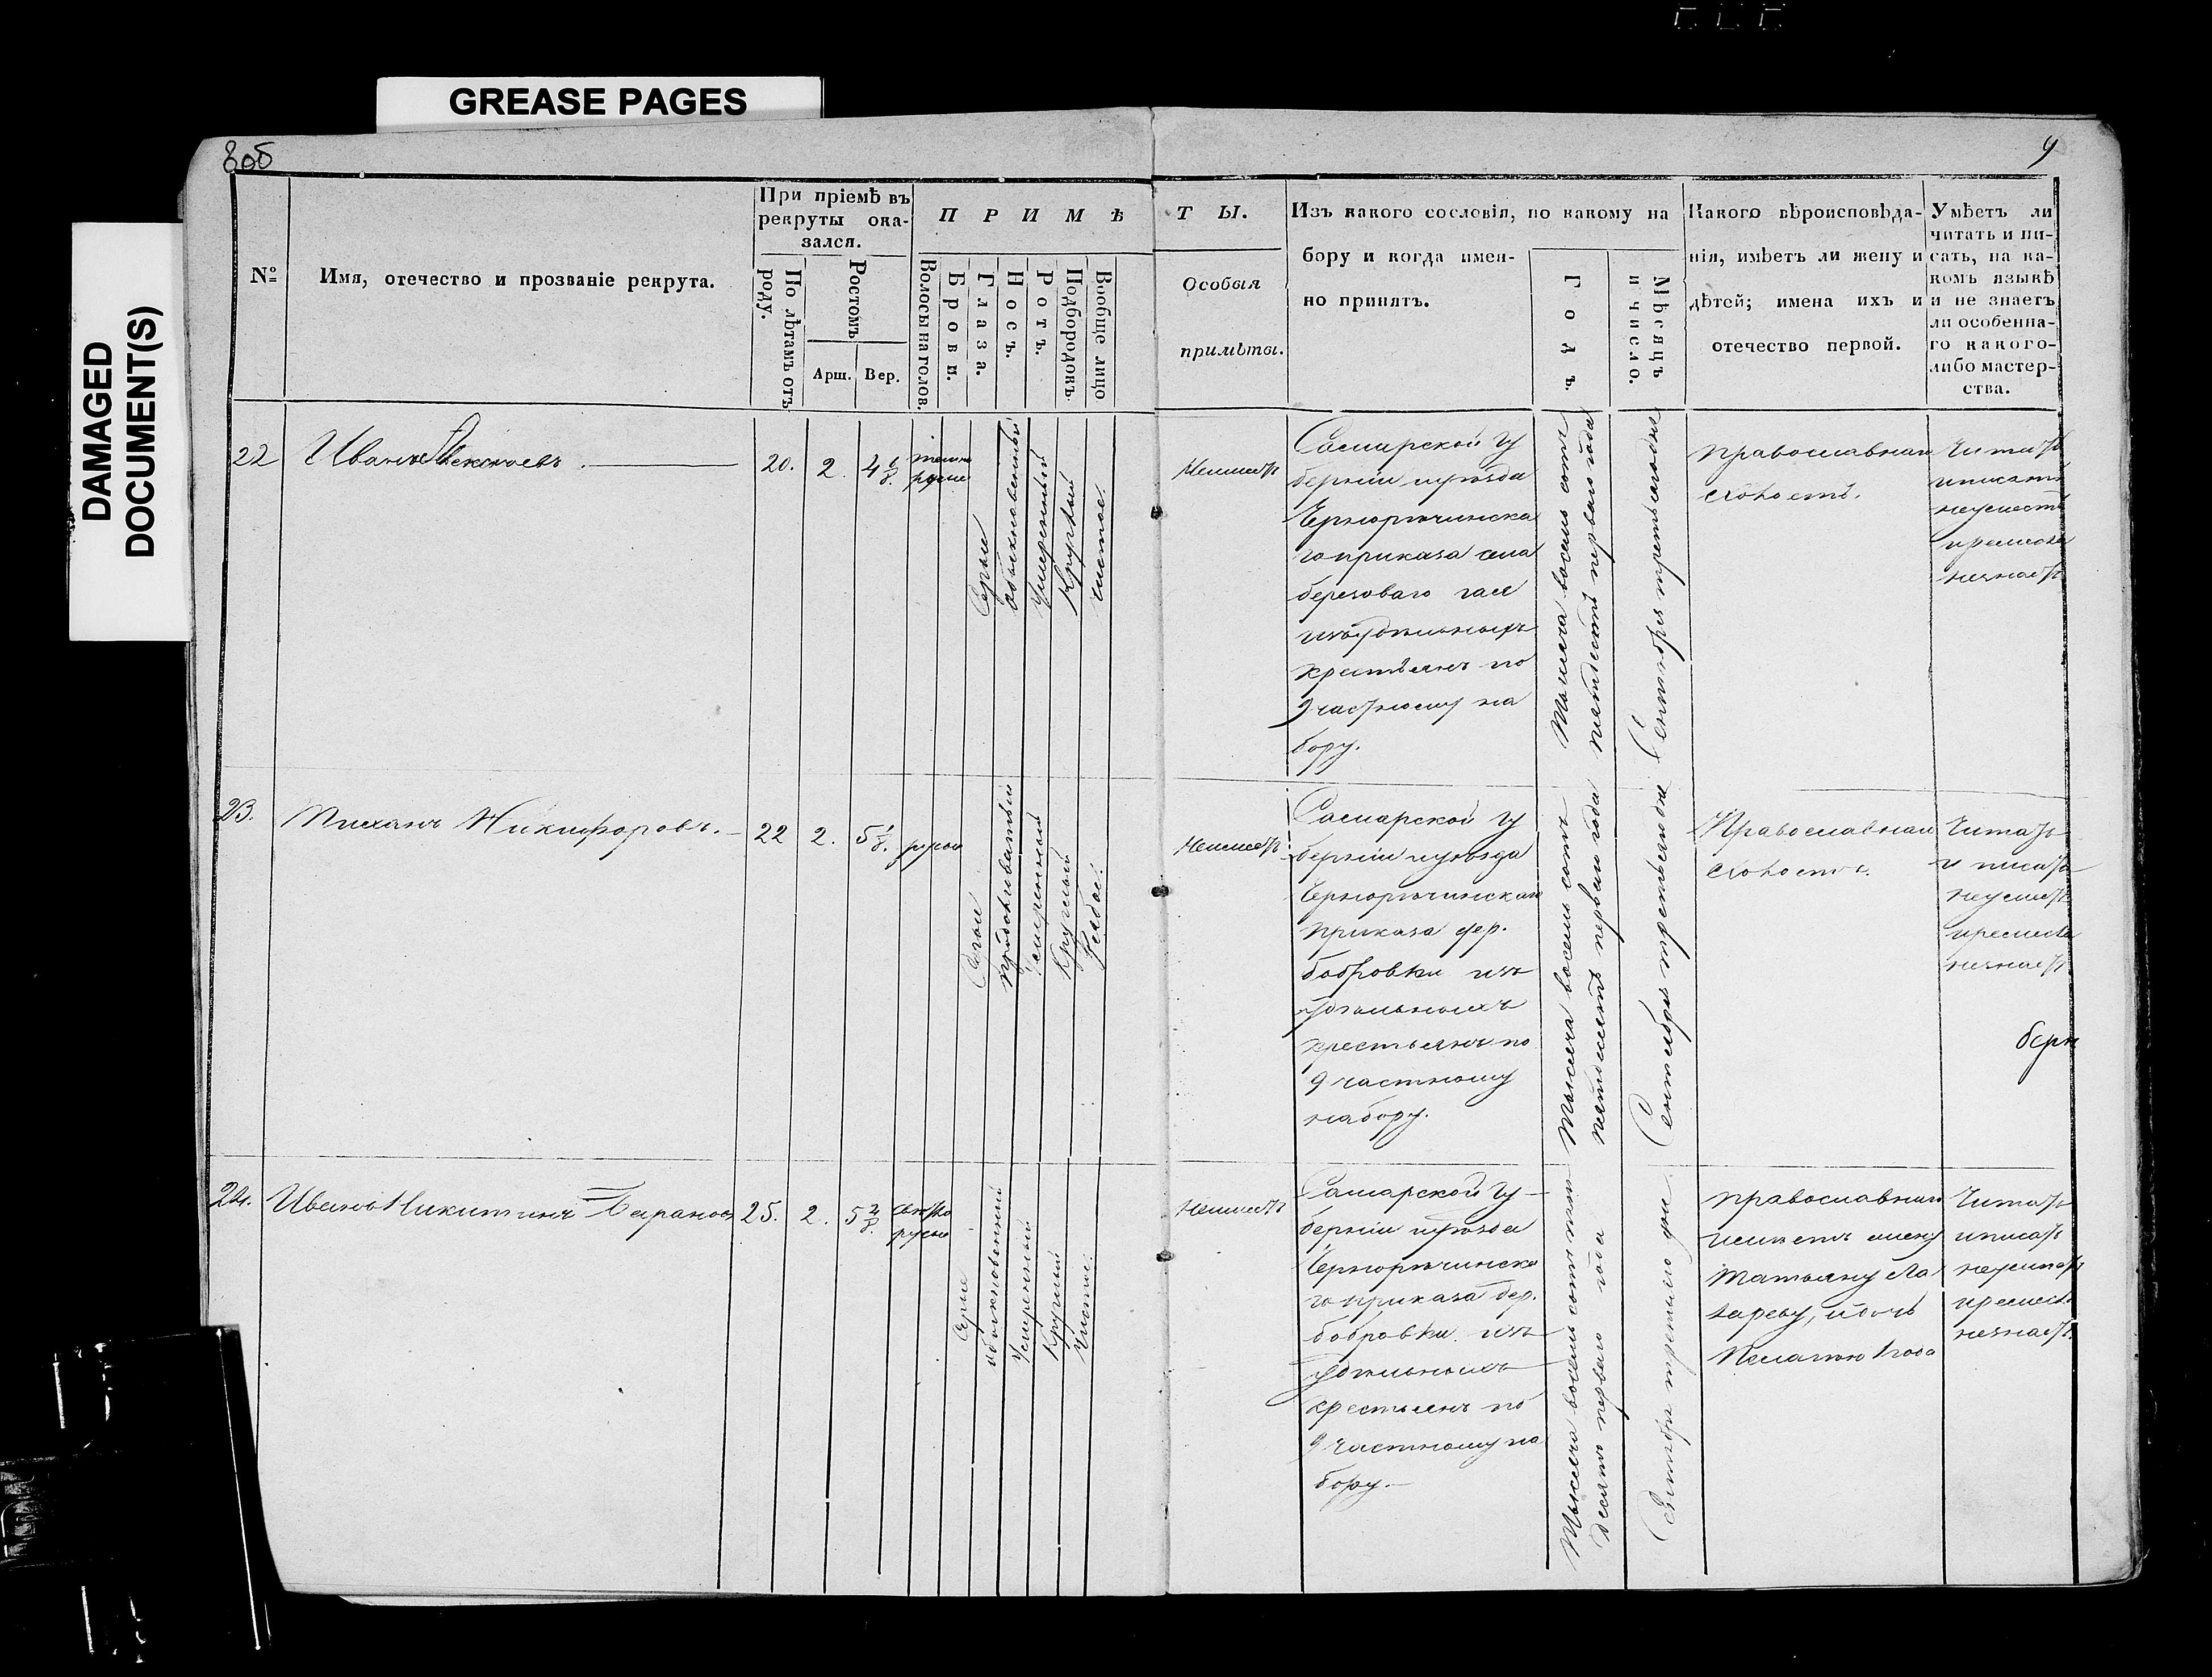 GREASE PAGES
DAMAGED
DOCUMENT(S)
8об
9
№
Имя, отечество и прозваніе рекрута.
При пріемѣ въ
рекруты ока-
зался.
По лѣтамъ отъ
роду.
Ростомъ
Арш.
Вер.
П Р И М Ѣ
Волосы на голов.
Брови.
Глаза.
Носъ.
Ротъ.
Подбородокъ
Вообще лицо
Т Ы.
Особыя
примѣты.
Изъ какого сословія, по какому на
бору и когда имен-
но принятъ.
Годъ.
Мѣсяцъ
и число.
Какого вѣроисповѣда-
нія, имѣетъ ли жену и
дѣтей; имена ихъ и
отечество первой.
Умѣетъ ли
читать и пи-
сать, на ка-
комъ языкѣ
и не знаетъ
ли особенна-
го какого-
либо мастер-
ства.
22
Иванъ Алексѣевъ.
20.
2.
4 6/8.
темно
русые
Серые
обыкновенный
Умеренный
Круглый
чистое.
Неимеетъ
Самарской гу
берніи и уѣзда
Чернорѣчинска
го приказа села
березоваго гая
изъ удѣльныхъ
крестьянъ по
9 частному на
бору.
Тысяча восемь сотъ
пятдесятъ перваго года
Сентября третьягодня
православнаго
холостъ.
Читать
и писать
неумеетъ
и ремесла
незнаетъ
23.
Михаилъ Никифоровъ.
22
2.
5 1/8.
русые
Серые
продолговатый
умеренный
Круглый
Рябое.
Неимеетъ
Самарской гу
берніи и уѣзда
Чернорѣчинскаго
приказа дер.
бобровки изъ
удѣльныхъ
крестьянъ по
9 частному
набору.
Тысяча восемь сотъ
пятьдесятъ перваго года
Сентября третьягодня
Православнаго
холостъ.
Читать
и писать
неумеетъ
и ремесла
незнаетъ
берн
24.
Иванъ Никитинъ Барановъ
25.
2.
5 4/8.
светло
русые
Серые
обыкновенный
Умеренный
Круглый
Чистое.
Неимеетъ
Самарской гу-
берніи и уѣзда
Чернорѣчинска
го приказа дер.
бобровки изъ
удѣльныхъ
крестьянъ по
9 частному на
бору.-
Тысяча восемь сотъ пять
десятъ перваго года
Сентября третьяго дня.
православнаго
имѣетъ жену
Татьяну Ла
зареву, и дочь
Пелагею 1 года
Читать
и писать
неумеетъ
и ремесла
незнаетъ.